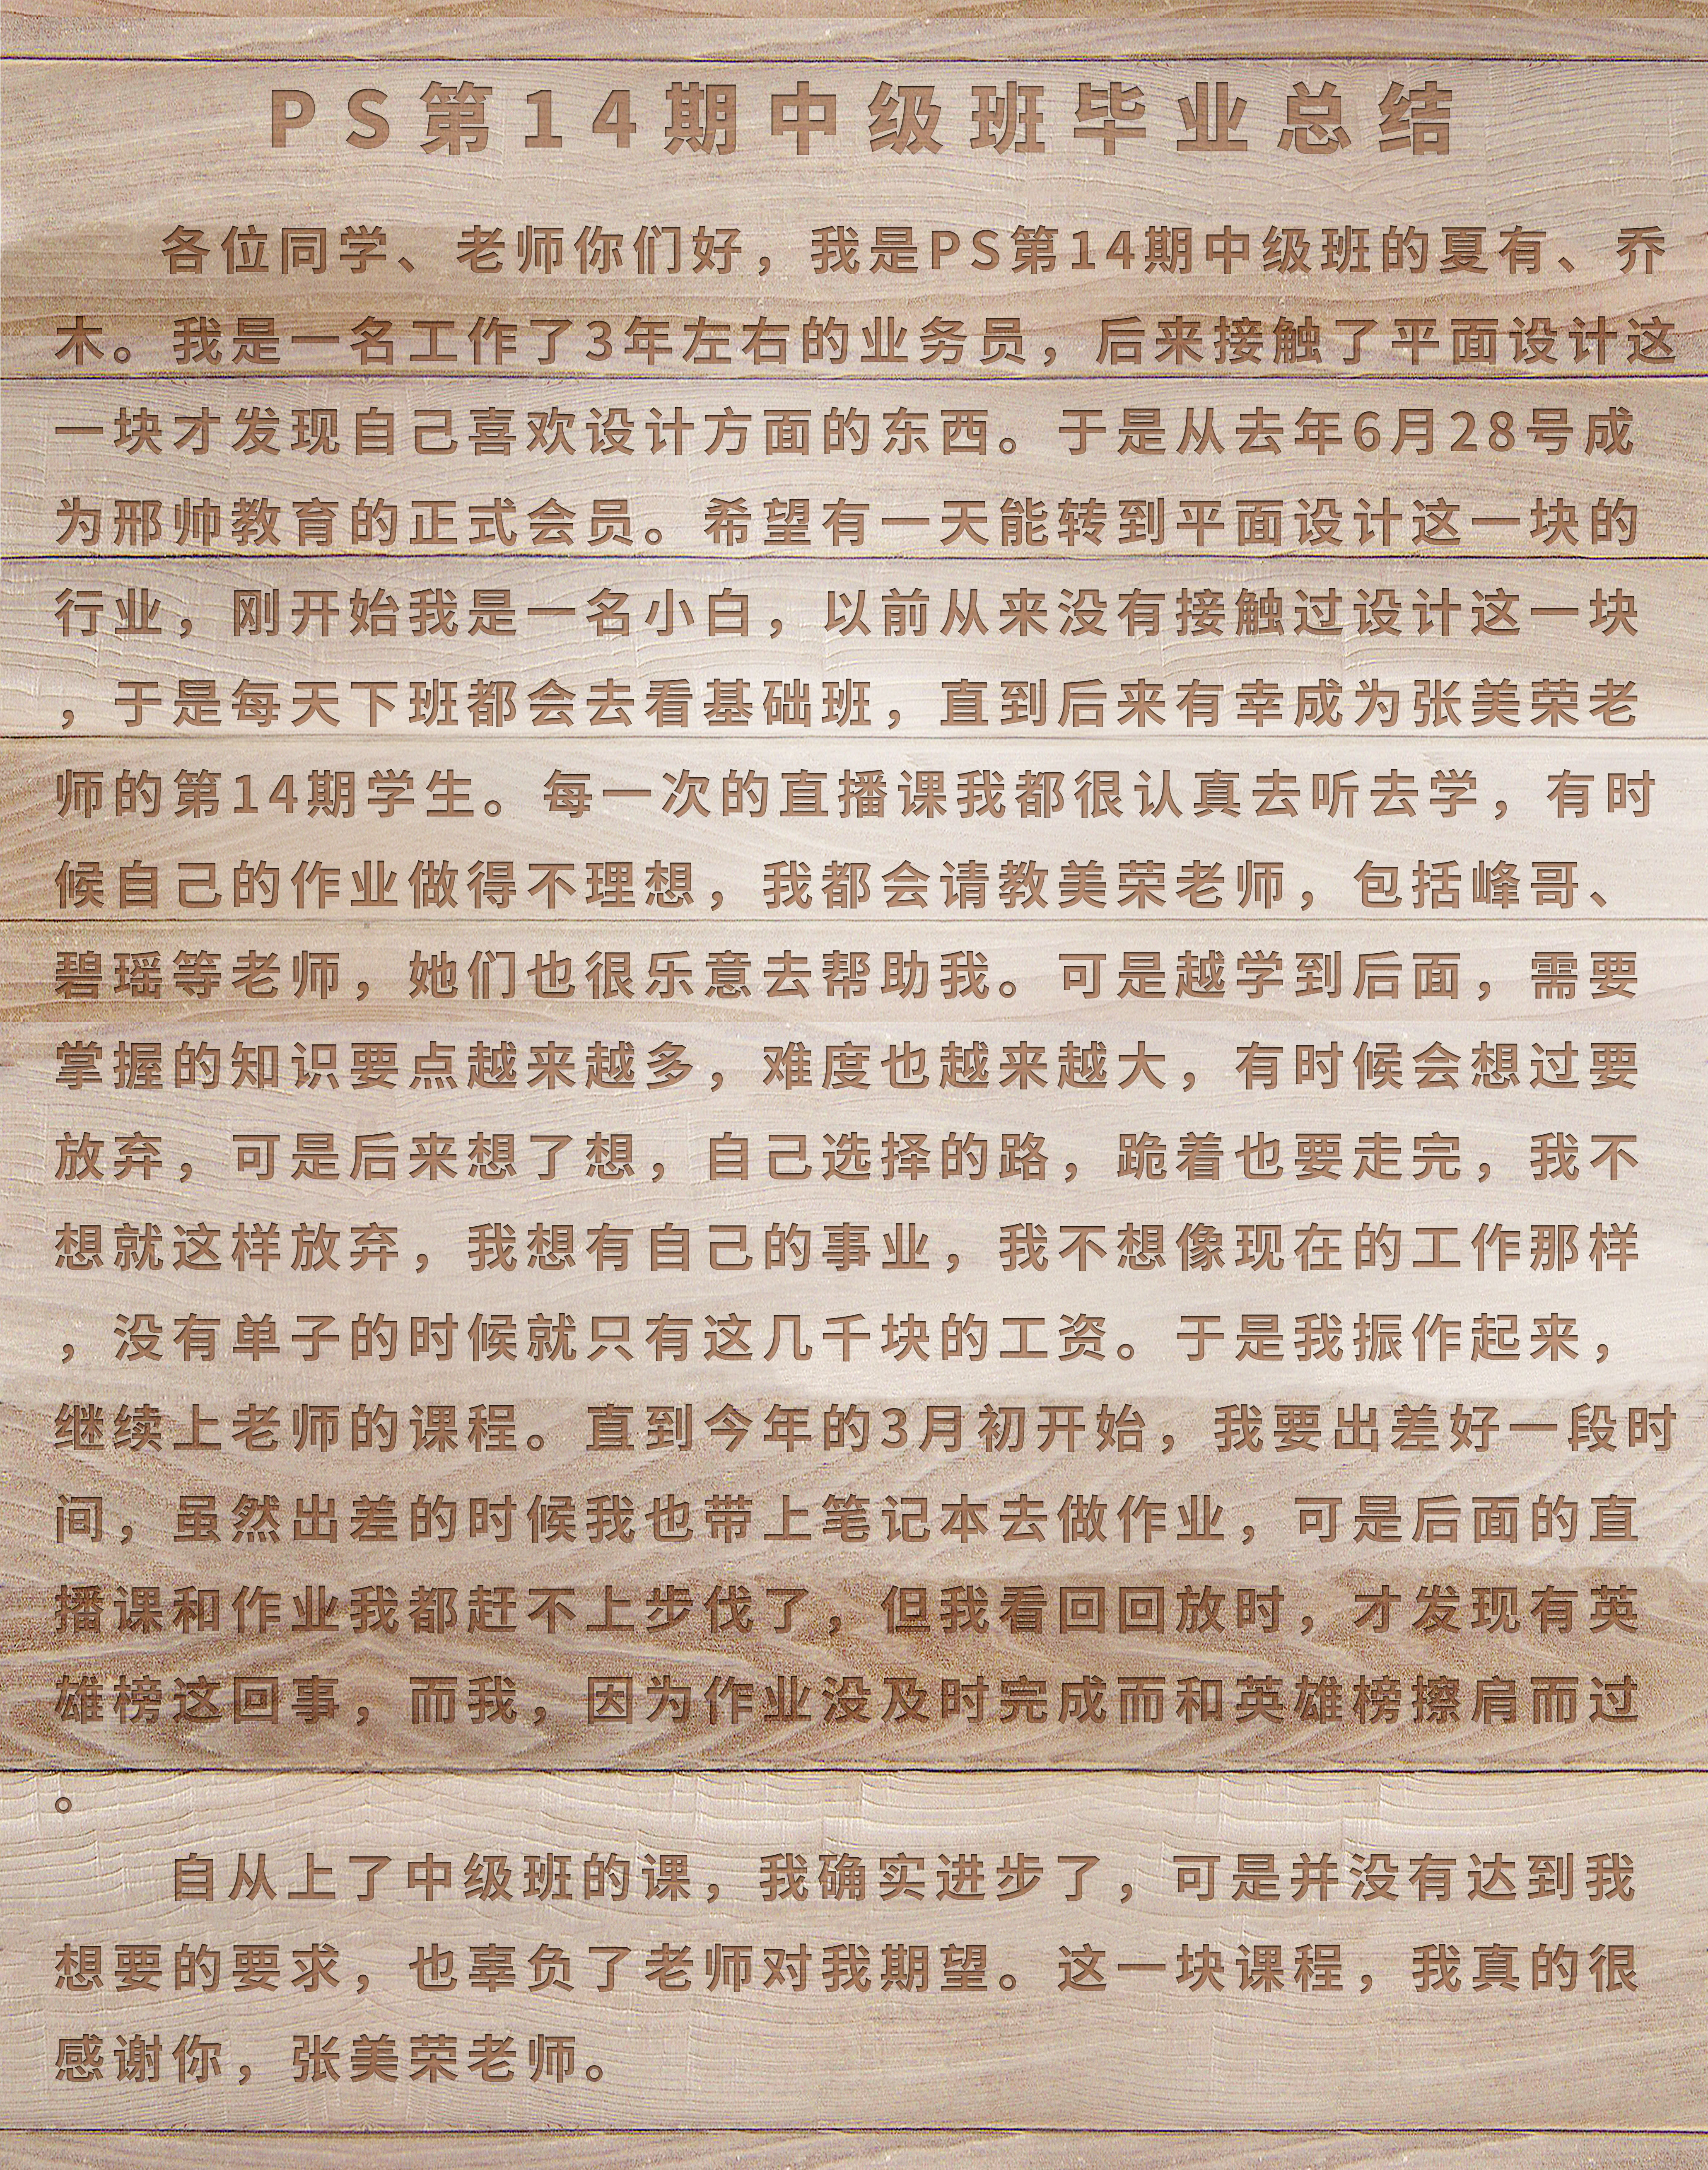 PS第14期中级班毕业总结
各位同学、老师你们好，我是PS第14期中级班的夏有、乔
木。我是一名工作了3年左右的业务员，后来接触了平面设计这
一块才发现自己喜欢设计方面的东西。于是从去年6月28号成
为邢帅教育的正式会员。希望有一天能转到平面设计这一块的
行业，刚开始我是一名小白，以前从来没有接触过设计这一块
，于是每天下班都会去看基础班，直到后来有幸成为张美荣老
师的第14期学生。每一次的直播课我都很认真去听去学，有时
候自己的作业做得不理想，我都会请教美荣老师，包括峰哥、
碧瑶等老师，她们也很乐意去帮助我。可是越学到后面，需要
掌握的知识要点越来越多，难度也越来越大，有时候会想过要
放弃，可是后来想了想，自己选择的路，跪着也要走完，我不
想就这样放弃，我想有自己的事业，我不想像现在的工作那样
，没有单子的时候就只有这几千块的工资。于是我振作起来，
继续上老师的课程。直到今年的3月初开始，我要出差好一段时
间，虽然出差的时候我也带上笔记本去做作业，可是后面的直
播课和作业我都赶不上步伐了，但我看回回放时，才发现有英
雄榜这回事，而我，因为作业没及时完成而和英雄榜擦肩而过
。
自从上了中级班的课，我确实进步了，可是并没有达到我
想要的要求，也辜负了老师对我期望。这一块课程，我真的很
感谢你，张美荣老师。